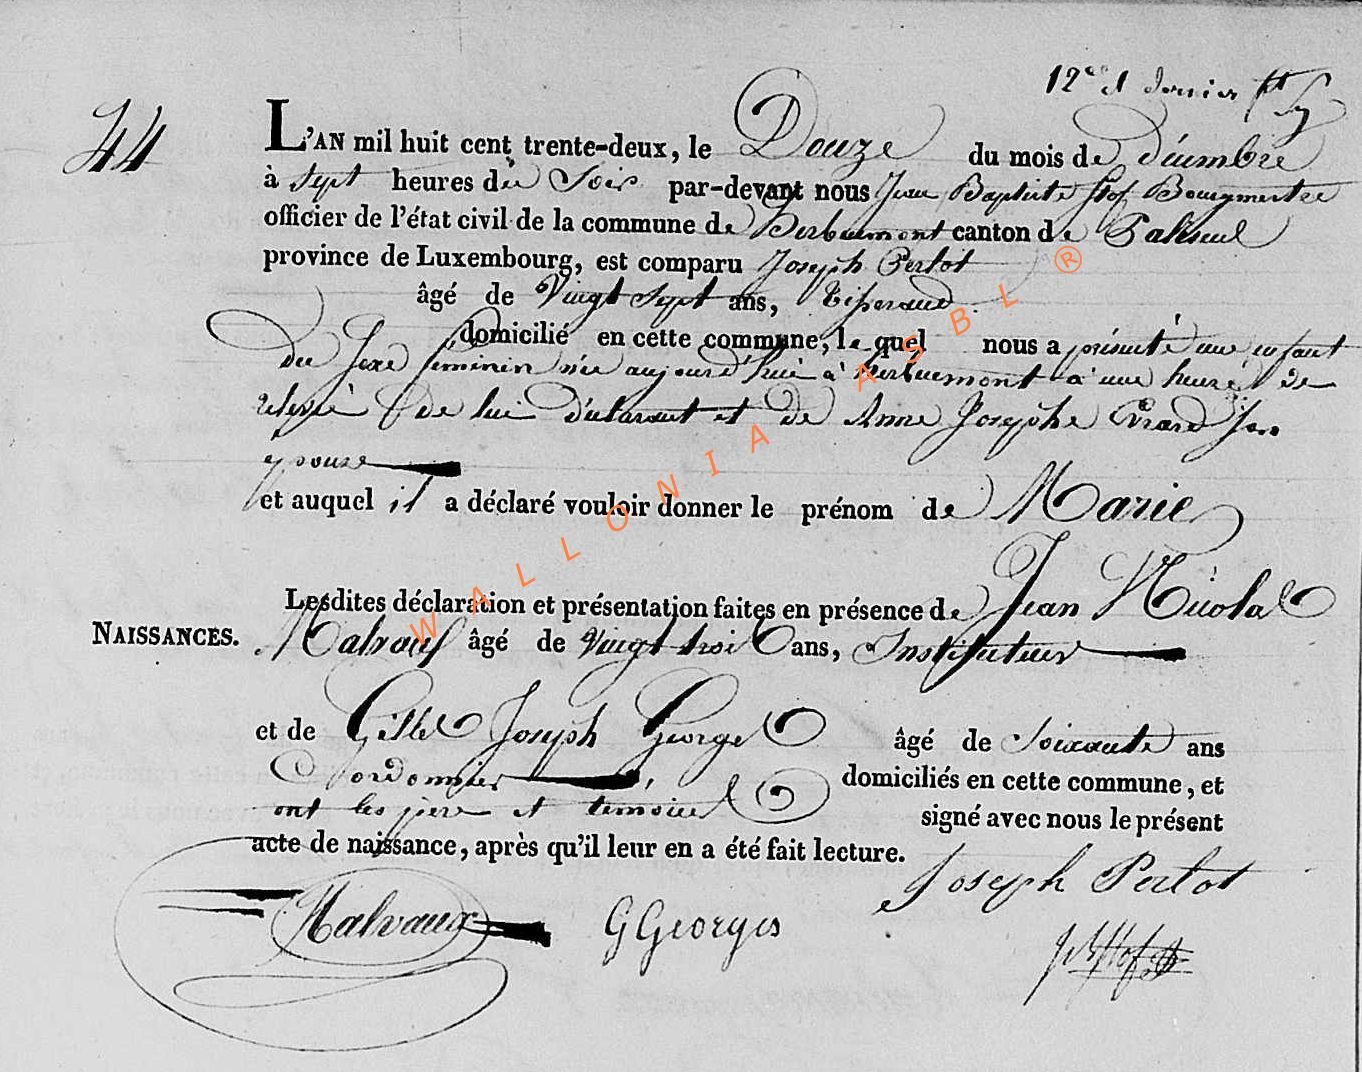 12e et dernier ft
44
L'AN mil huit cent trente-deux, le Douze du mois de décembre
à sept heures du Soir par-devant nous Jean Baptiste Bourgmestre
officier de l'état civil de la commune de Herbeumont canton de Paliseul
province de Luxembourg, est comparu Joseph Perlot
âgé de Vingt Sept ans, Tisserand
domicilié en cette commune, le quel nous a présenté un enfant
du Sexe feminin née aujourd'hui à herbeumont à une heure de
relevé de lui déclarant et de Anne Josephe Evrard son
epouse
et auquel il a déclaré vouloir donner le prénom de Marie
Lesdites déclaration et présentation faites en présence de Jean Nicolas
NAISSANCES.
Malvaux âgé de Vingt trois ans, Instituteur
et de Gilles Joseph Georges âgé de Soixante ans
Cordonnier domiciliés en cette commune, et
ont les pere et temoins signé avec nous le présent
acte de naissance, après qu'il leur en a été fait lecture.
Joseph Perlot
Malvaux
GGeorges
WALLONIA ASBL ®